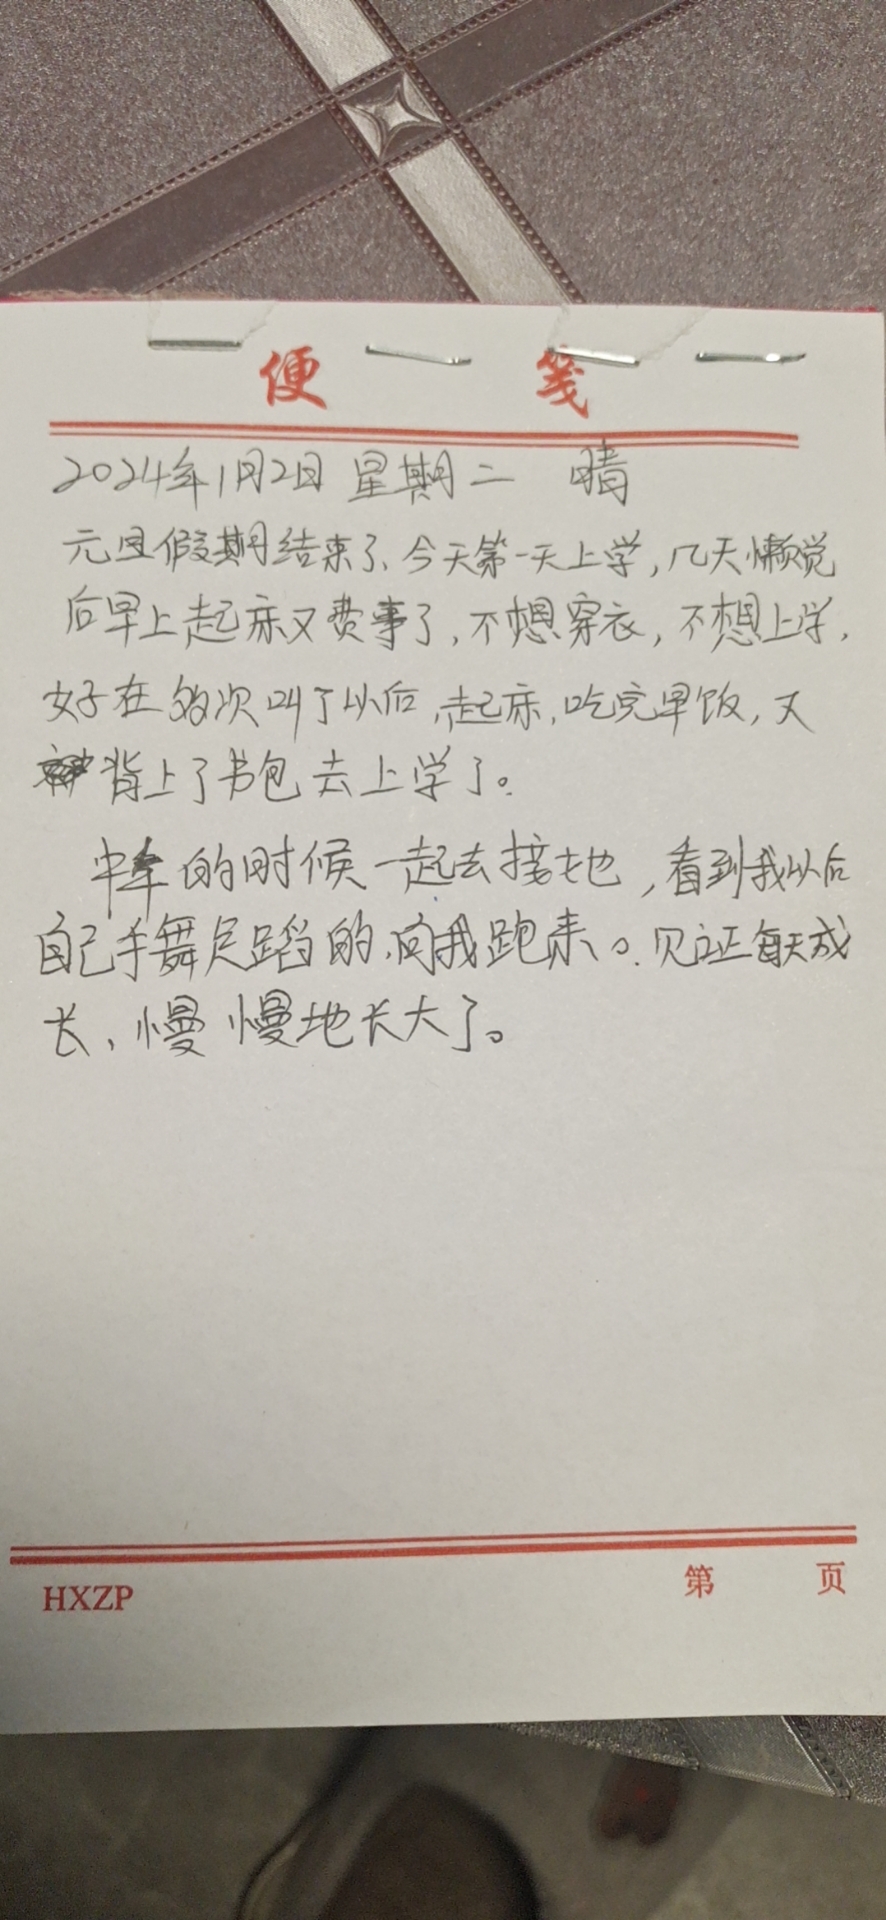 便 笺
2024年1月2日 星期二 晴
元旦假期结束了、今天第一天上学,几天懒觉
后早上起床又费事了,不想穿衣,不想上学,
好在多次叫了以后,起床,吃完早饭,又
背上了书包去上学了。
中午的时候一起去接她,看到我以后
自己手舞足蹈的,向我跑来。见证每天成
长、慢慢地长大了。
HXZP 第 页